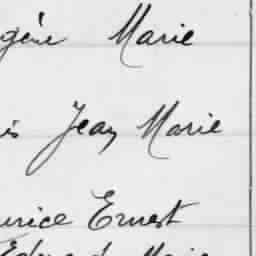 gène Marie
is Jean Marie
urice Ernest
Edouard Marie